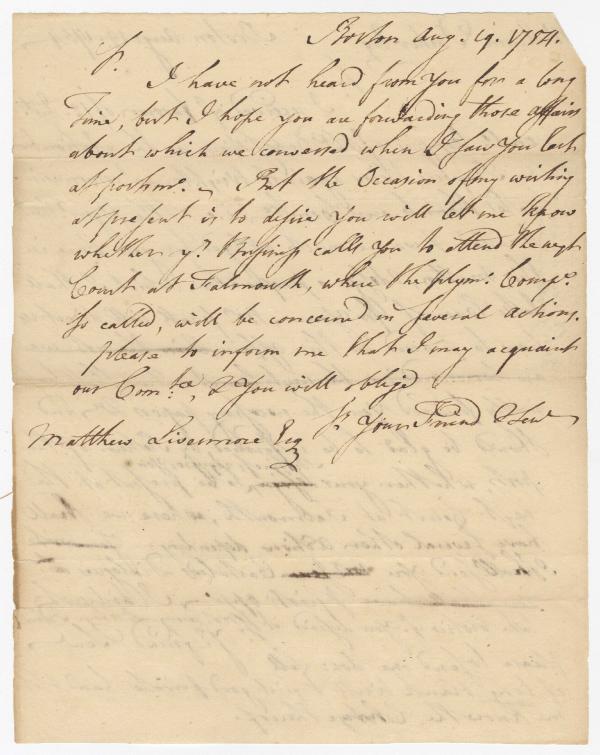 Boston Aug. 19. 1754.
Sr.
I have not heard from You for a long
Time, but I hope you are forwarding those affairs
about which we conversed when I saw You last
at portsmo. — But the Occasion of my writing
at present is to desire you will let me know
whether yr. Business calls You to attend the next
Court at Falmouth, where the plymo. Compa.
so called, will be concerned in several actions.
please to inform me that I may acquaint
our Comtee, & You will oblige
Sr Your Friend & Servt
Matthew Livermore Esq